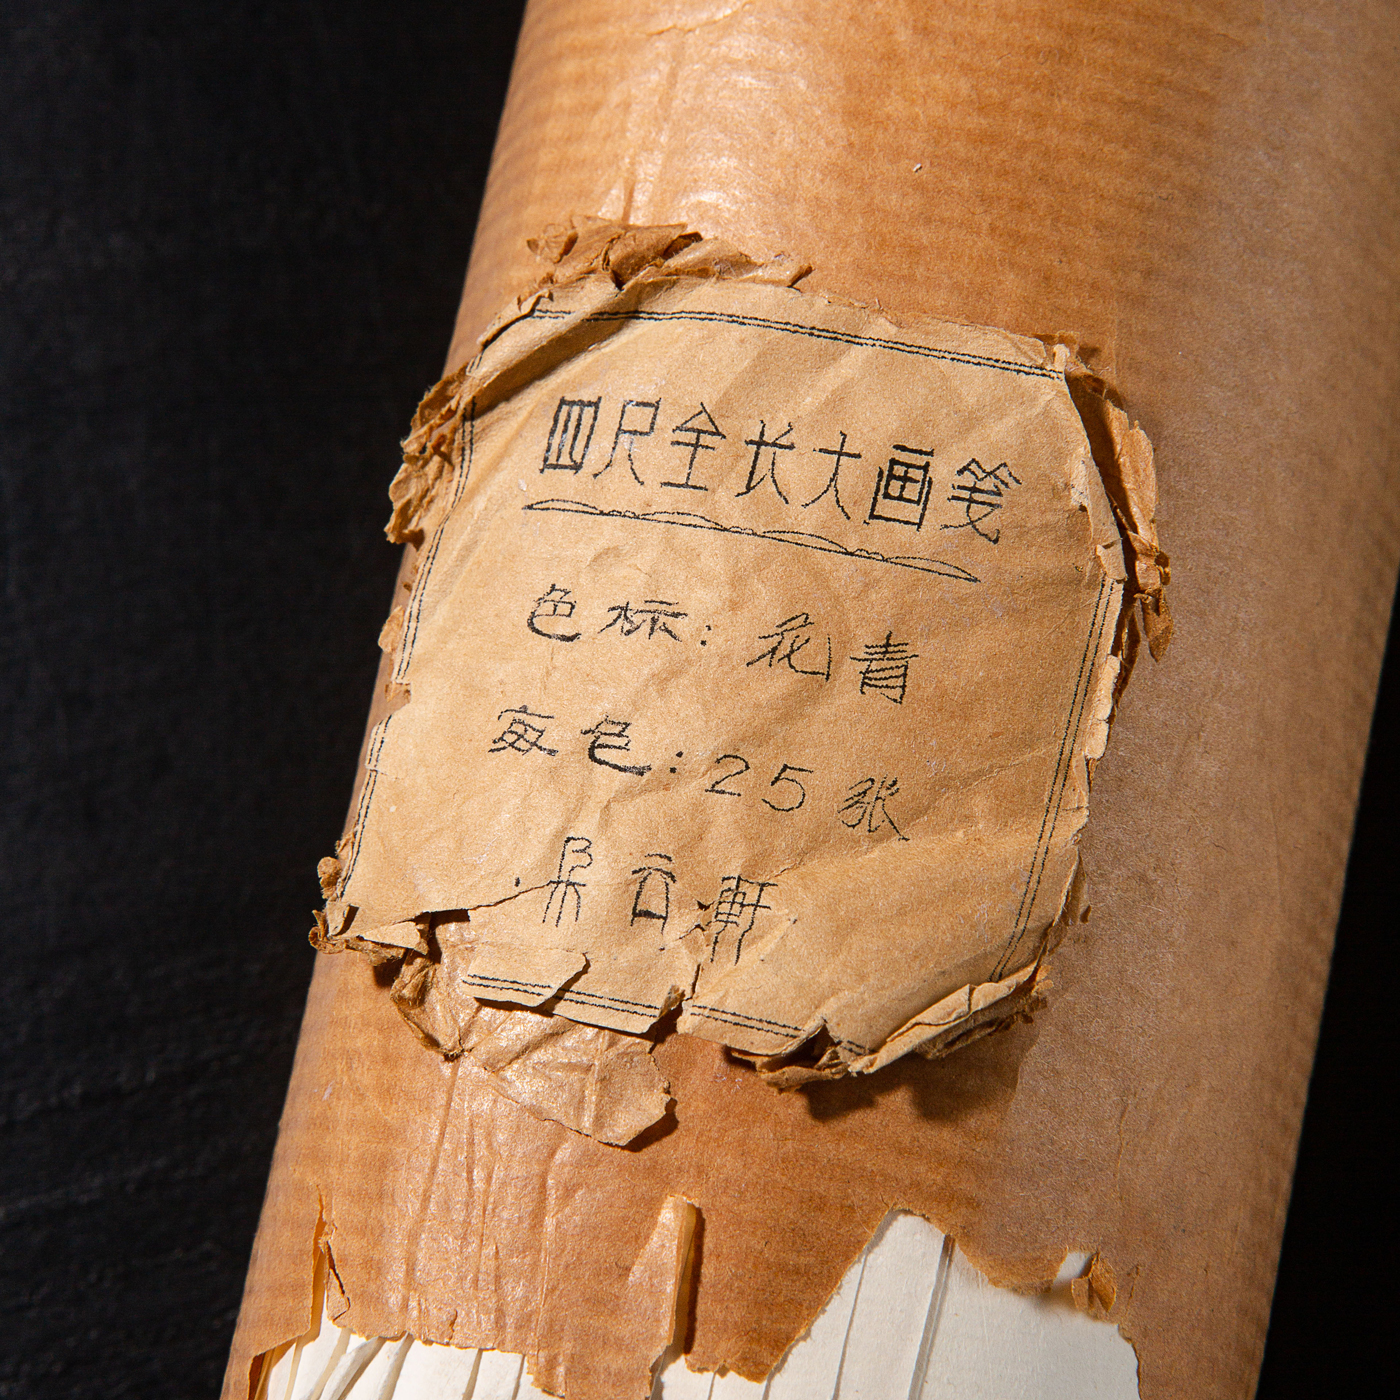 四尺全长大画笺
色标：花青
每包：25张
朵云軒